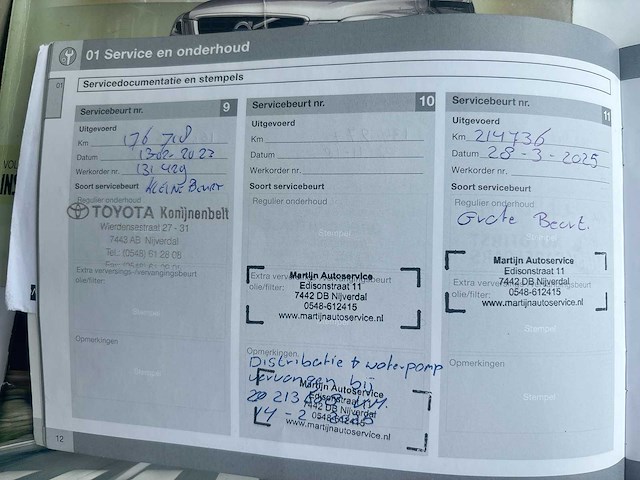 01 Service en onderhoud
01
Servicedocumentatie en stempels
Servicebeurt nr. 9
Uitgevoerd
Km 176 718
Datum 13-02-2023
Werkorder nr. 131 429
Soort servicebeurt KLEINE BEURT
Regulier onderhoud
TOYOTA Konijnenbelt
Wierdensestraat 27 - 31
7443 AB Nijverdal
Tel.: (0548) 61 28 08
Extra verversings-/vervangingsbeurt
olie/filter:
Stempel
Opmerkingen
Stempel
12
Servicebeurt nr. 10
Uitgevoerd
Km
Datum
Werkorder nr.
Soort servicebeurt
Regulier onderhoud
Stempel
Extra verversings-/vervangingsbeurt
olie/filter:
Martijn Autoservice
Edisonstraat 11
7442 DB Nijverdal
0548-612415
www.martijnautoservice.nl
Stempel
Opmerkingen
Distributie + waterpomp
vervangen bij
213
14-2-
Martijn Autoservice
Edisonstraat 11
7442 DB Nijverdal
0548-612415
www.martijnautoservice.nl
Servicebeurt nr. 11
Uitgevoerd
Km 214736
Datum 28-3-2025
Werkorder nr.
Soort servicebeurt
Regulier onderhoud
Grote Beurt.
Stempel
Extra verversings-/vervangingsbeurt
olie/filter:
Martijn Autoservice
Edisonstraat 11
7442 DB Nijverdal
0548-612415
www.martijnautoservice.nl
Stempel
Opmerkingen
Stempel